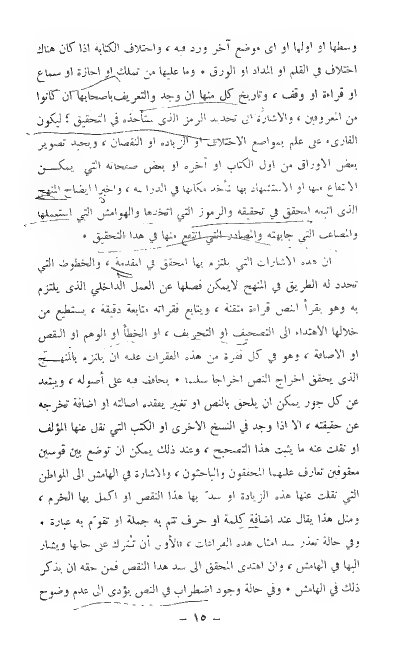 وسطها او اولها او اى موضع آخر ورد فيه ، واختلاف الكتابه اذا كان هناك
اختلاف في القلم او المداد او الورق • وما عليها من تملك او اجازة او سماع
او قراءة او وقف ، وتاريخ كل منها ان وجد والتعريف باصحابها ان كانوا
من المعروفين ، والاشارة الى تحديد الرمز الذى ستأخذه في التحقيق ؛ ليكون
القارىء على علم بمواضع الاختلاف او الزيادة او النقصان ، ويحبذ تصوير
بعض الاوراق من اول الكتاب او آخره او بعض صفحاته التي يمكن
الانتفاع منها او الاستشهاد بها لتأخذ مكانها في الدراسة ، واخيرا ايضاح المنهج
الذى اتبعه المحقق في تحقيقه والرموز التي اتخذها والهوامش التي استعملها
والمصاعب التي جابهته والمصادر التي انتفع منها في هذا التحقيق •
ان هذه الاشارات التي يلتزم بها المحقق في المقدمة ، والخطوط التي
تحدد له الطريق في المنهج لايمكن فصلها عن العمل الداخلي الذى يلتزم
به وهو يقرأ النص قراءة متقنة ، ويتابع فقراته متابعة دقيقة ، يستطيع من
خلالها الاهتداء الى التصحيف او التحريف ، او الخطأ او الوهم او النقص
او الاضافة ، وهو في كل فقرة من هذه الفقرات عليه ان يلتزم بالمنهج
الذى يحقق اخراج النص اخراجا سليما • يحافظ فيه على أصوله ، ويبتعد
عن كل جور يمكن ان يلحق بالنص او تغيير يفقده اصالته او اضافة تخرجه
عن حقيقته ، الا اذا وجد في النسخ الاخرى او الكتب التي نقل عنها المؤلف
او نقلت عنه ما يثبت هذا التصحيح ، وعند ذلك يمكن ان توضع بين قوسين
معقوفين تعارف عليهما المحققون والباحثون ، والاشارة في الهامش الى المواطن
التي نقلت عنها هذه الزيادة او سد بها هذا النقص او اكمل بها الخرم ،
ومثل هذا يقال عند اضافة كلمة او حرف تتم به جملة او تقوم به عبارة •
وفي حالة تعذر سد امثال هذه الفراغات ، فالأولى أن تترك على حالها ويشار
اليها في الهامش ، وان اهتدى المحقق الى سد هذا النقص فمن حقه ان يذكر
ذلك في الهامش • وفي حالة وجود اضطراب في النص يؤدى الى عدم وضوح
– ١٥ –